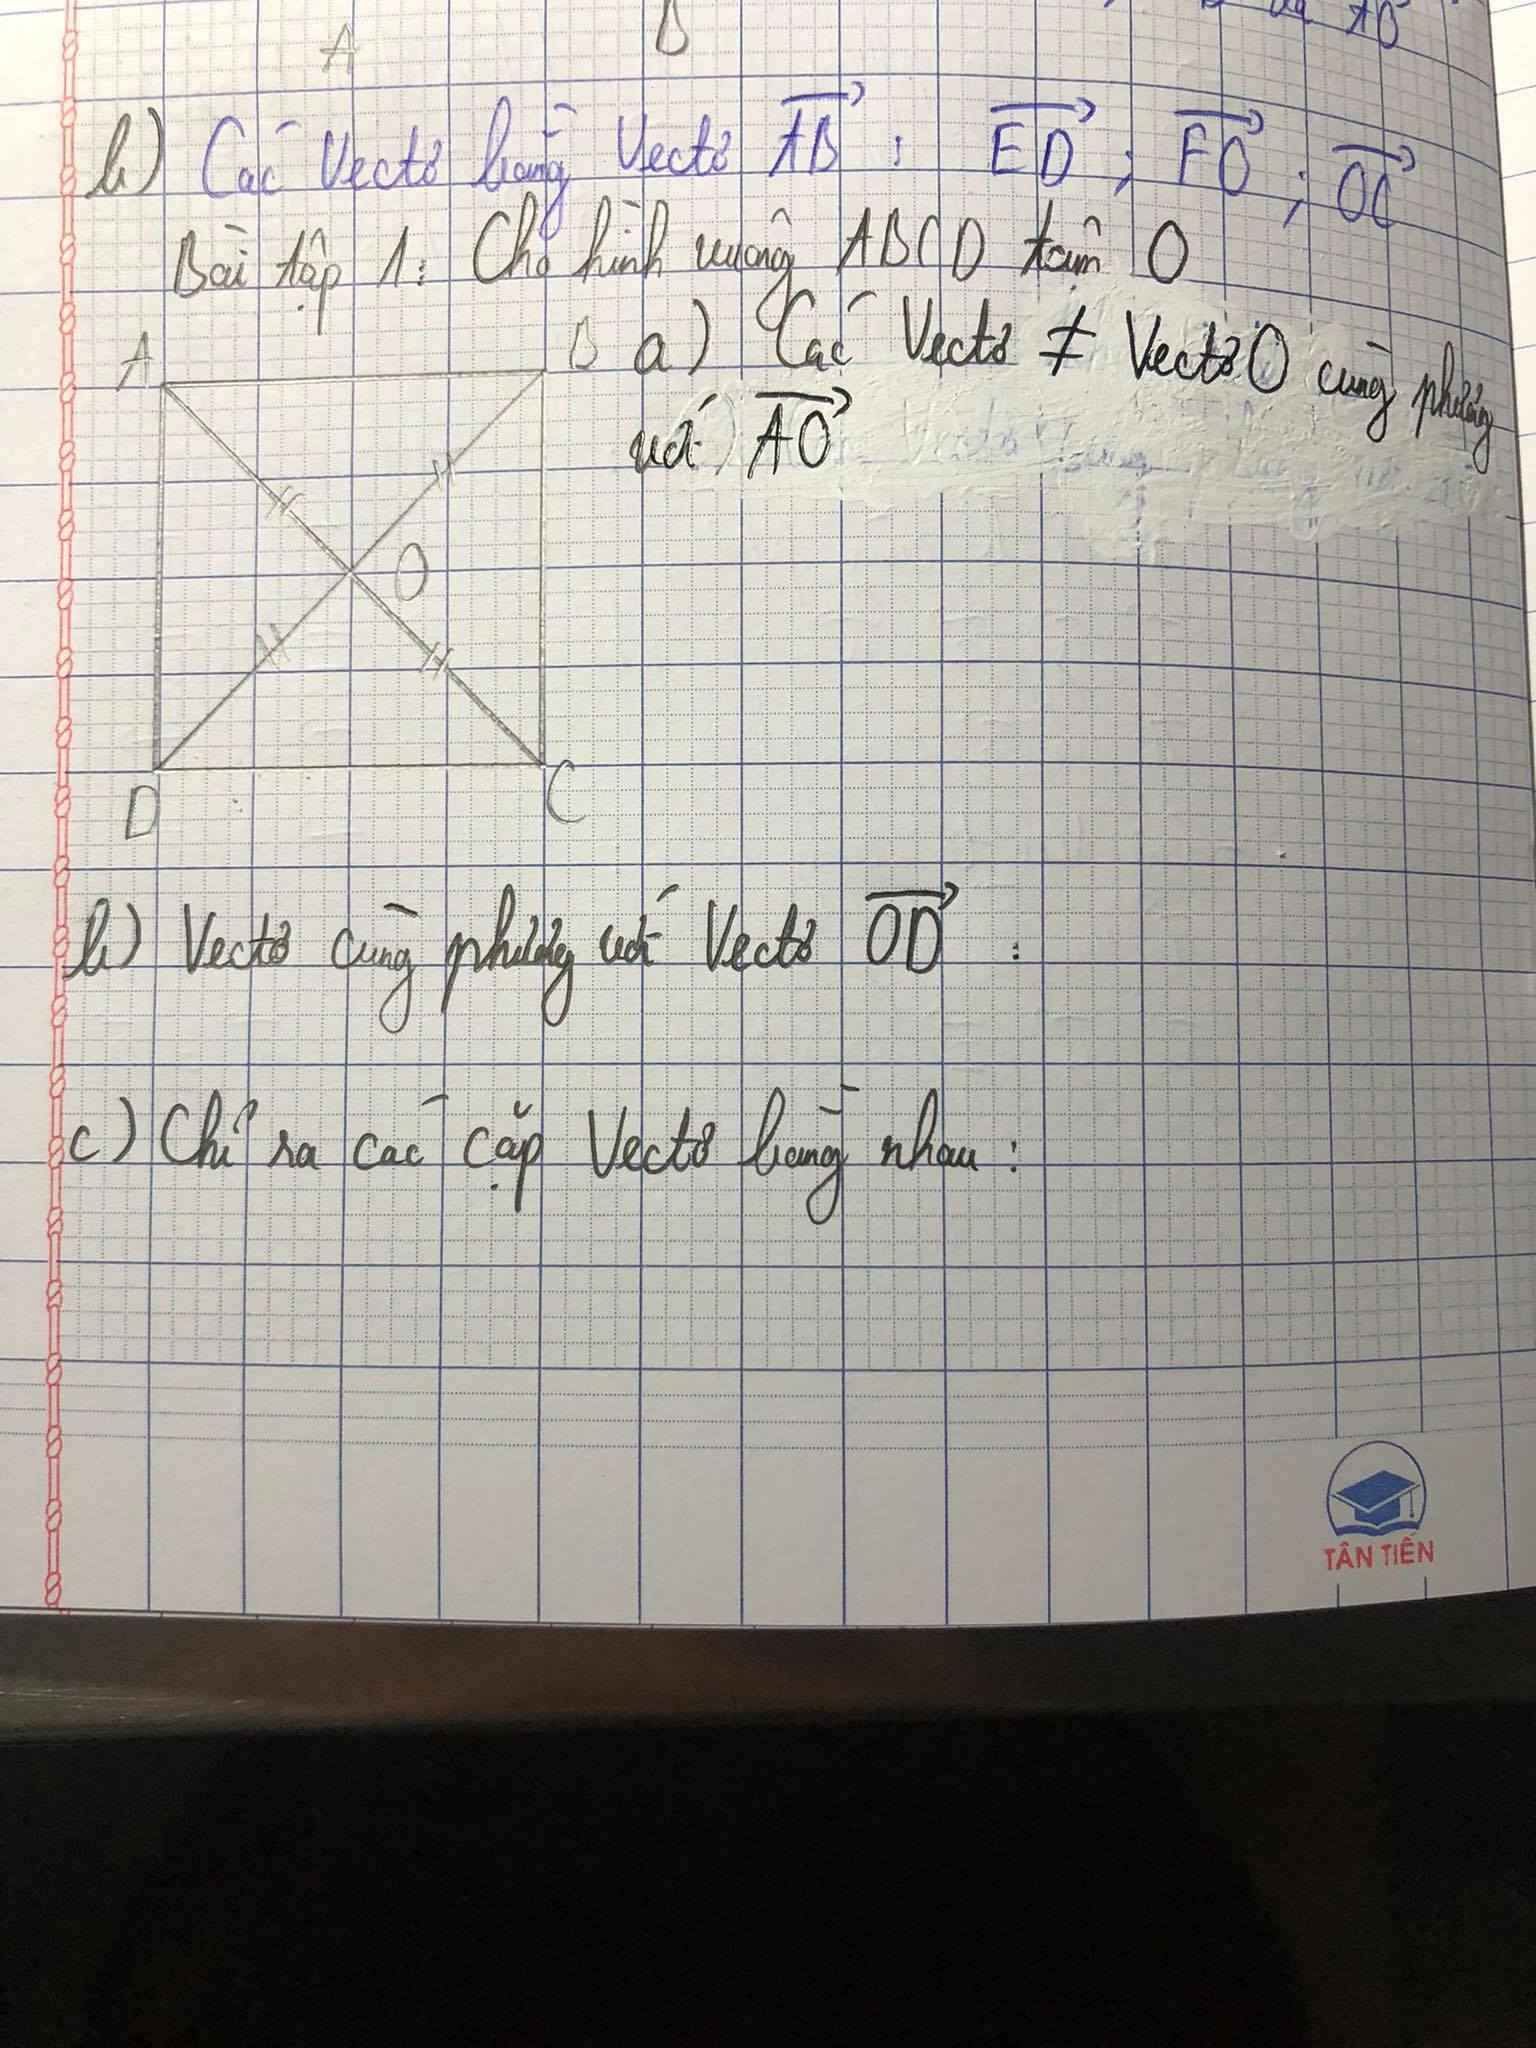 A B và AO
b) Các Vectơ bằng Vectơ AB : ED ; FO ; OC
Bài tập 1: Cho hình vuông ABCD tâm O
A B
a) Các Vectơ ≠ Vectơ O cùng phương
với AO
O
D C
b) Vectơ cùng phương với Vectơ OD :
c) Chỉ ra các cặp Vectơ bằng nhau :
TÂN TIẾN